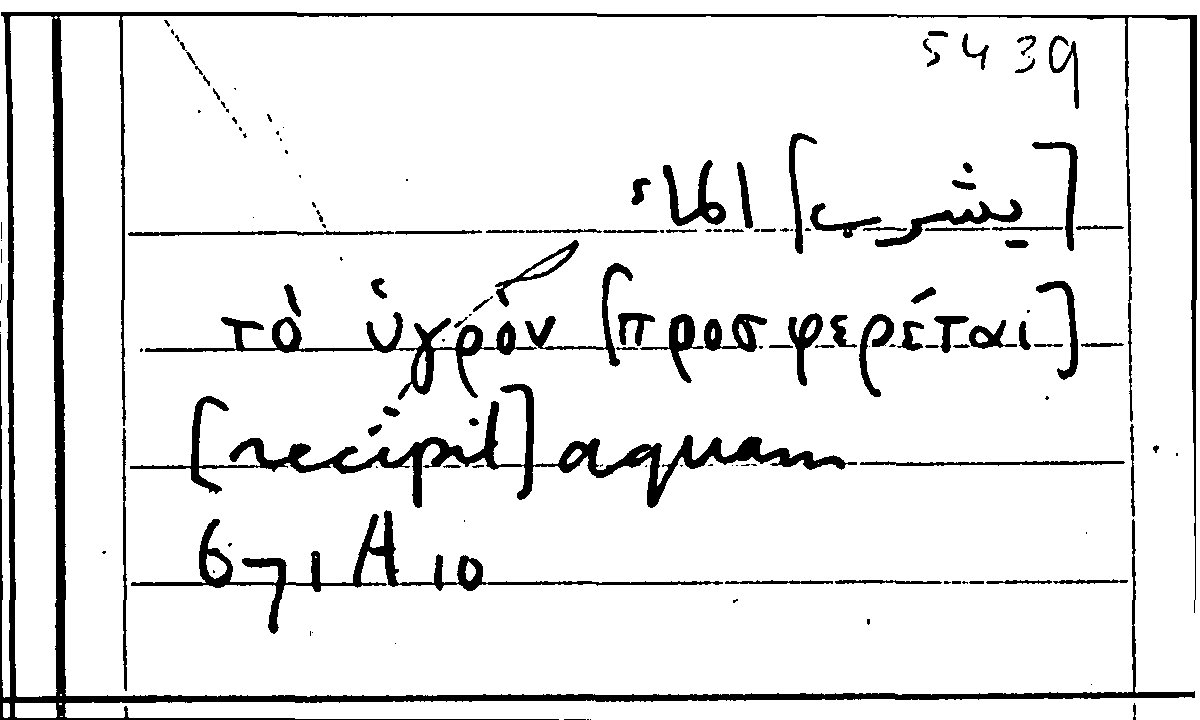 5439
[يشرب] الماء
τὸ ὑγρὸν [προσφέρεται]
[recipit] aquam
671 A 10